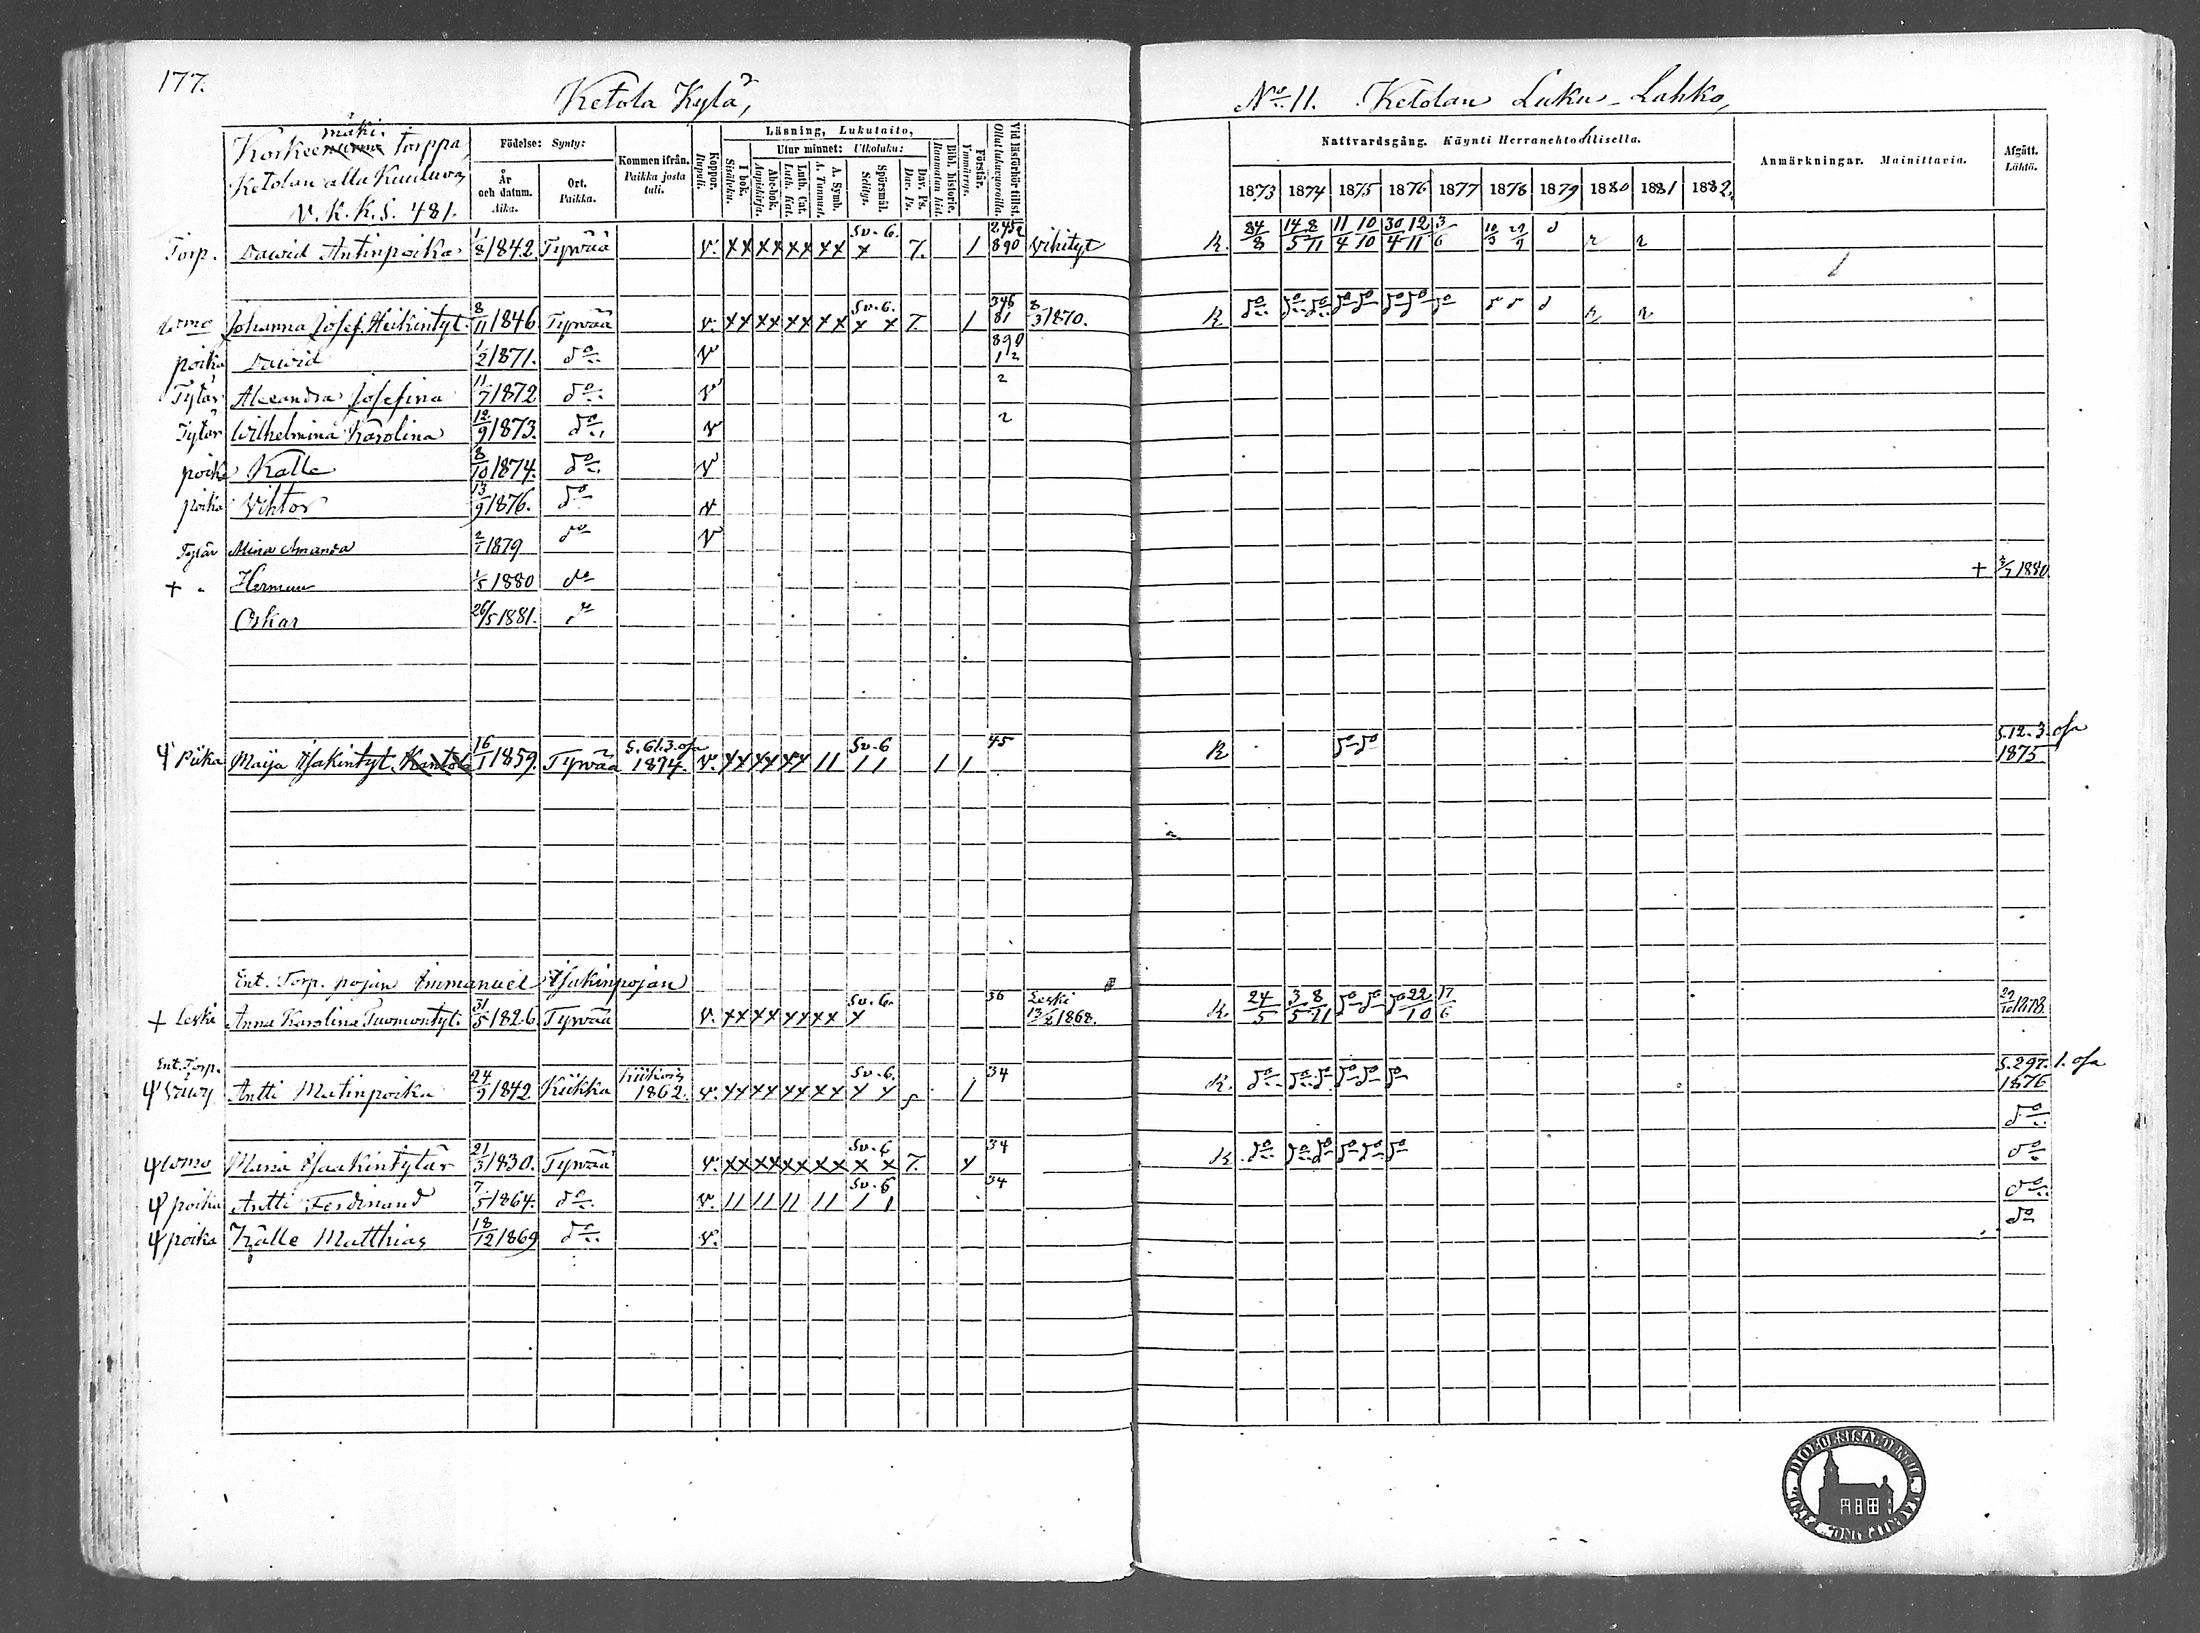 177.
Ketola Kylä,
No 11. Ketolan Luku-Lahko,
mäki.
Korkeenurme torppa,
Ketolan alla Kuuluva,
V. K. K. S. 481.
Födelse: Synty:
År och datum. Aika.
Ort. Paikka.
Kommen ifrån. Paikka josta tuli.
Koppor. Rupuli.
Läsning, Lukutaito,
I bok. Sisäluku.
Utur minnet: Ulkoluku:
Abc-bok. Aapiskirja.
Luth. Cat. Luth. Kat.
A. Symb. A. Tunnust.
Spörsmål. Selitys.
Dav. Ps. Dav. Ps.
Bibl. historie. Raamatun hist.
Förstår. Ymmärrys.
Vid läsförhör tillst. Ollut lukuvuoroilla.
Nattvardsgång. Käynti Herranehtoollisella.
1873 1874 1875 1876 1877 1878 1879 1880 1881 1882.
Anmärkningar. Mainittavia.
Afgått. Lähtö.
Torp. Dawid Antinpoika 1/8 1842 Tyrwää v. Sv. 6. 7. 1 2452 890 Vihityt R. 24/8 14/5 8/11 11/4 10/10 30/4 12/11 3/6
womo Johanna Josef. Heikintyt. 8/11 1846 Tyrwää v. Sv. 6. 7. 1 346 81 8/3 1870. R. do
poika Dawid 1/2 1871. do v 890 12
Tytär Alexandra Josefina 11/7 1872 do v 2
Tytär Wilhelmina Karolina 12/9 1873. do v 2
poika Kalle 8/10 1874. do v
poika Vihtor 13/9 1876. do v
Tytär Mina Amanda 2/1 1879 do v
+ Herman 1/5 1880 do + 3/7 1880.
Oskar 26/5 1881. do
Piika Maija Isakintyt. 16/1 1859. Tyrwää S. 61. 3. osa 1874. v. Sv. 6 45 R. do do S. 12. 3. osa 1875.
Ent. Torp. pojan Emmanuel Isakinpojan
+ Leski Anna Karolina Tuomontyt. 31/5 1826. Tyrwää v. Sv. 6. 36 Leski 13/2 1868. R. 24/5 3/5 8/11 do do do 22/10 17/6 29/10 1878.
Ent. Torp.
Antti Matinpoika 24/9 1842 Kiikka 1862. v. Sv. 6. 5 1 34 R. do S. 297. 1. osa 1876
do
womo Maria Isaakintytär 21/3 1830. Tyrwää v. Sv. 6 7. 34 R do do
poika Antti Ferdinand 7/5 1864. do v. Sv. 6 34 do
poika Kalle Matthias 18/12 1869 do v. do